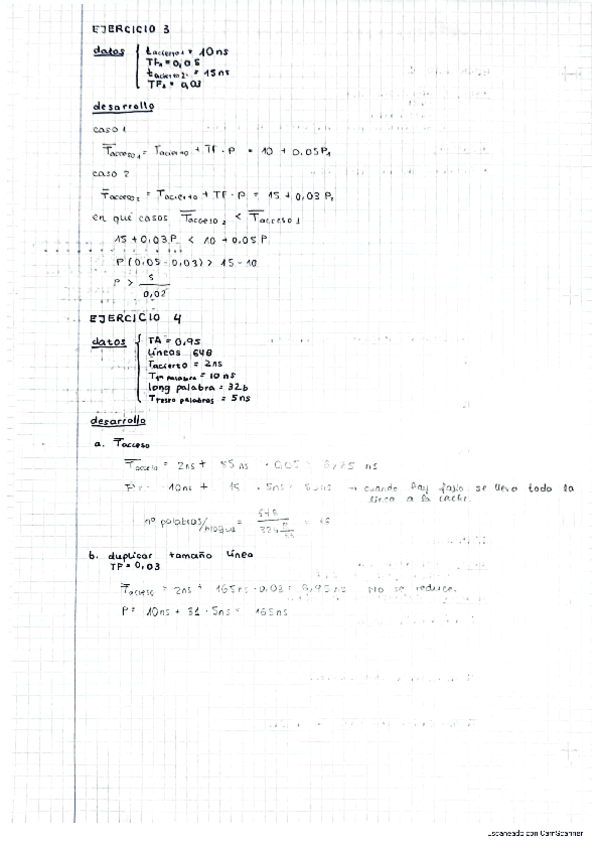 EJERCICIO 3
datos
tacierto1 = 10ns
TF1 = 0,05
tacierto2 = 15ns
TF2 = 0,03
desarrollo
caso 1
Tacceso1 = Tacierto + TF · P = 10 + 0.05P1
caso 2
Tacceso2 = Tacierto + TF · P = 15 + 0,03 P2
en qué casos Tacceso2 < Tacceso1
15 + 0,03P < 10 + 0.05P
P(0,05 - 0,03) > 15 - 10
P > 5
0,02
EJERCICIO 4
datos
TA = 0,95
Líneas 64B
Tacierto = 2ns
T1ª palabra = 10 ns
long palabra = 32b
Tresto palabras = 5ns
desarrollo
a. Tacceso
Tacceso = 2ns + 85 ns · 0,05 = 6,25 ns
P = 10ns + 15 · 5ns = 85ns → cuando hay fallo se lleva todo la
línea a la caché.
nº palabras/bloque = 64B = 16
b. duplicar tamaño línea
TF = 0,03
Tacceso = 2ns + 165ns · 0,03 = 6,95ns No se reduce.
P = 10ns + 31 · 5ns = 165ns
Escaneado con CamScanner